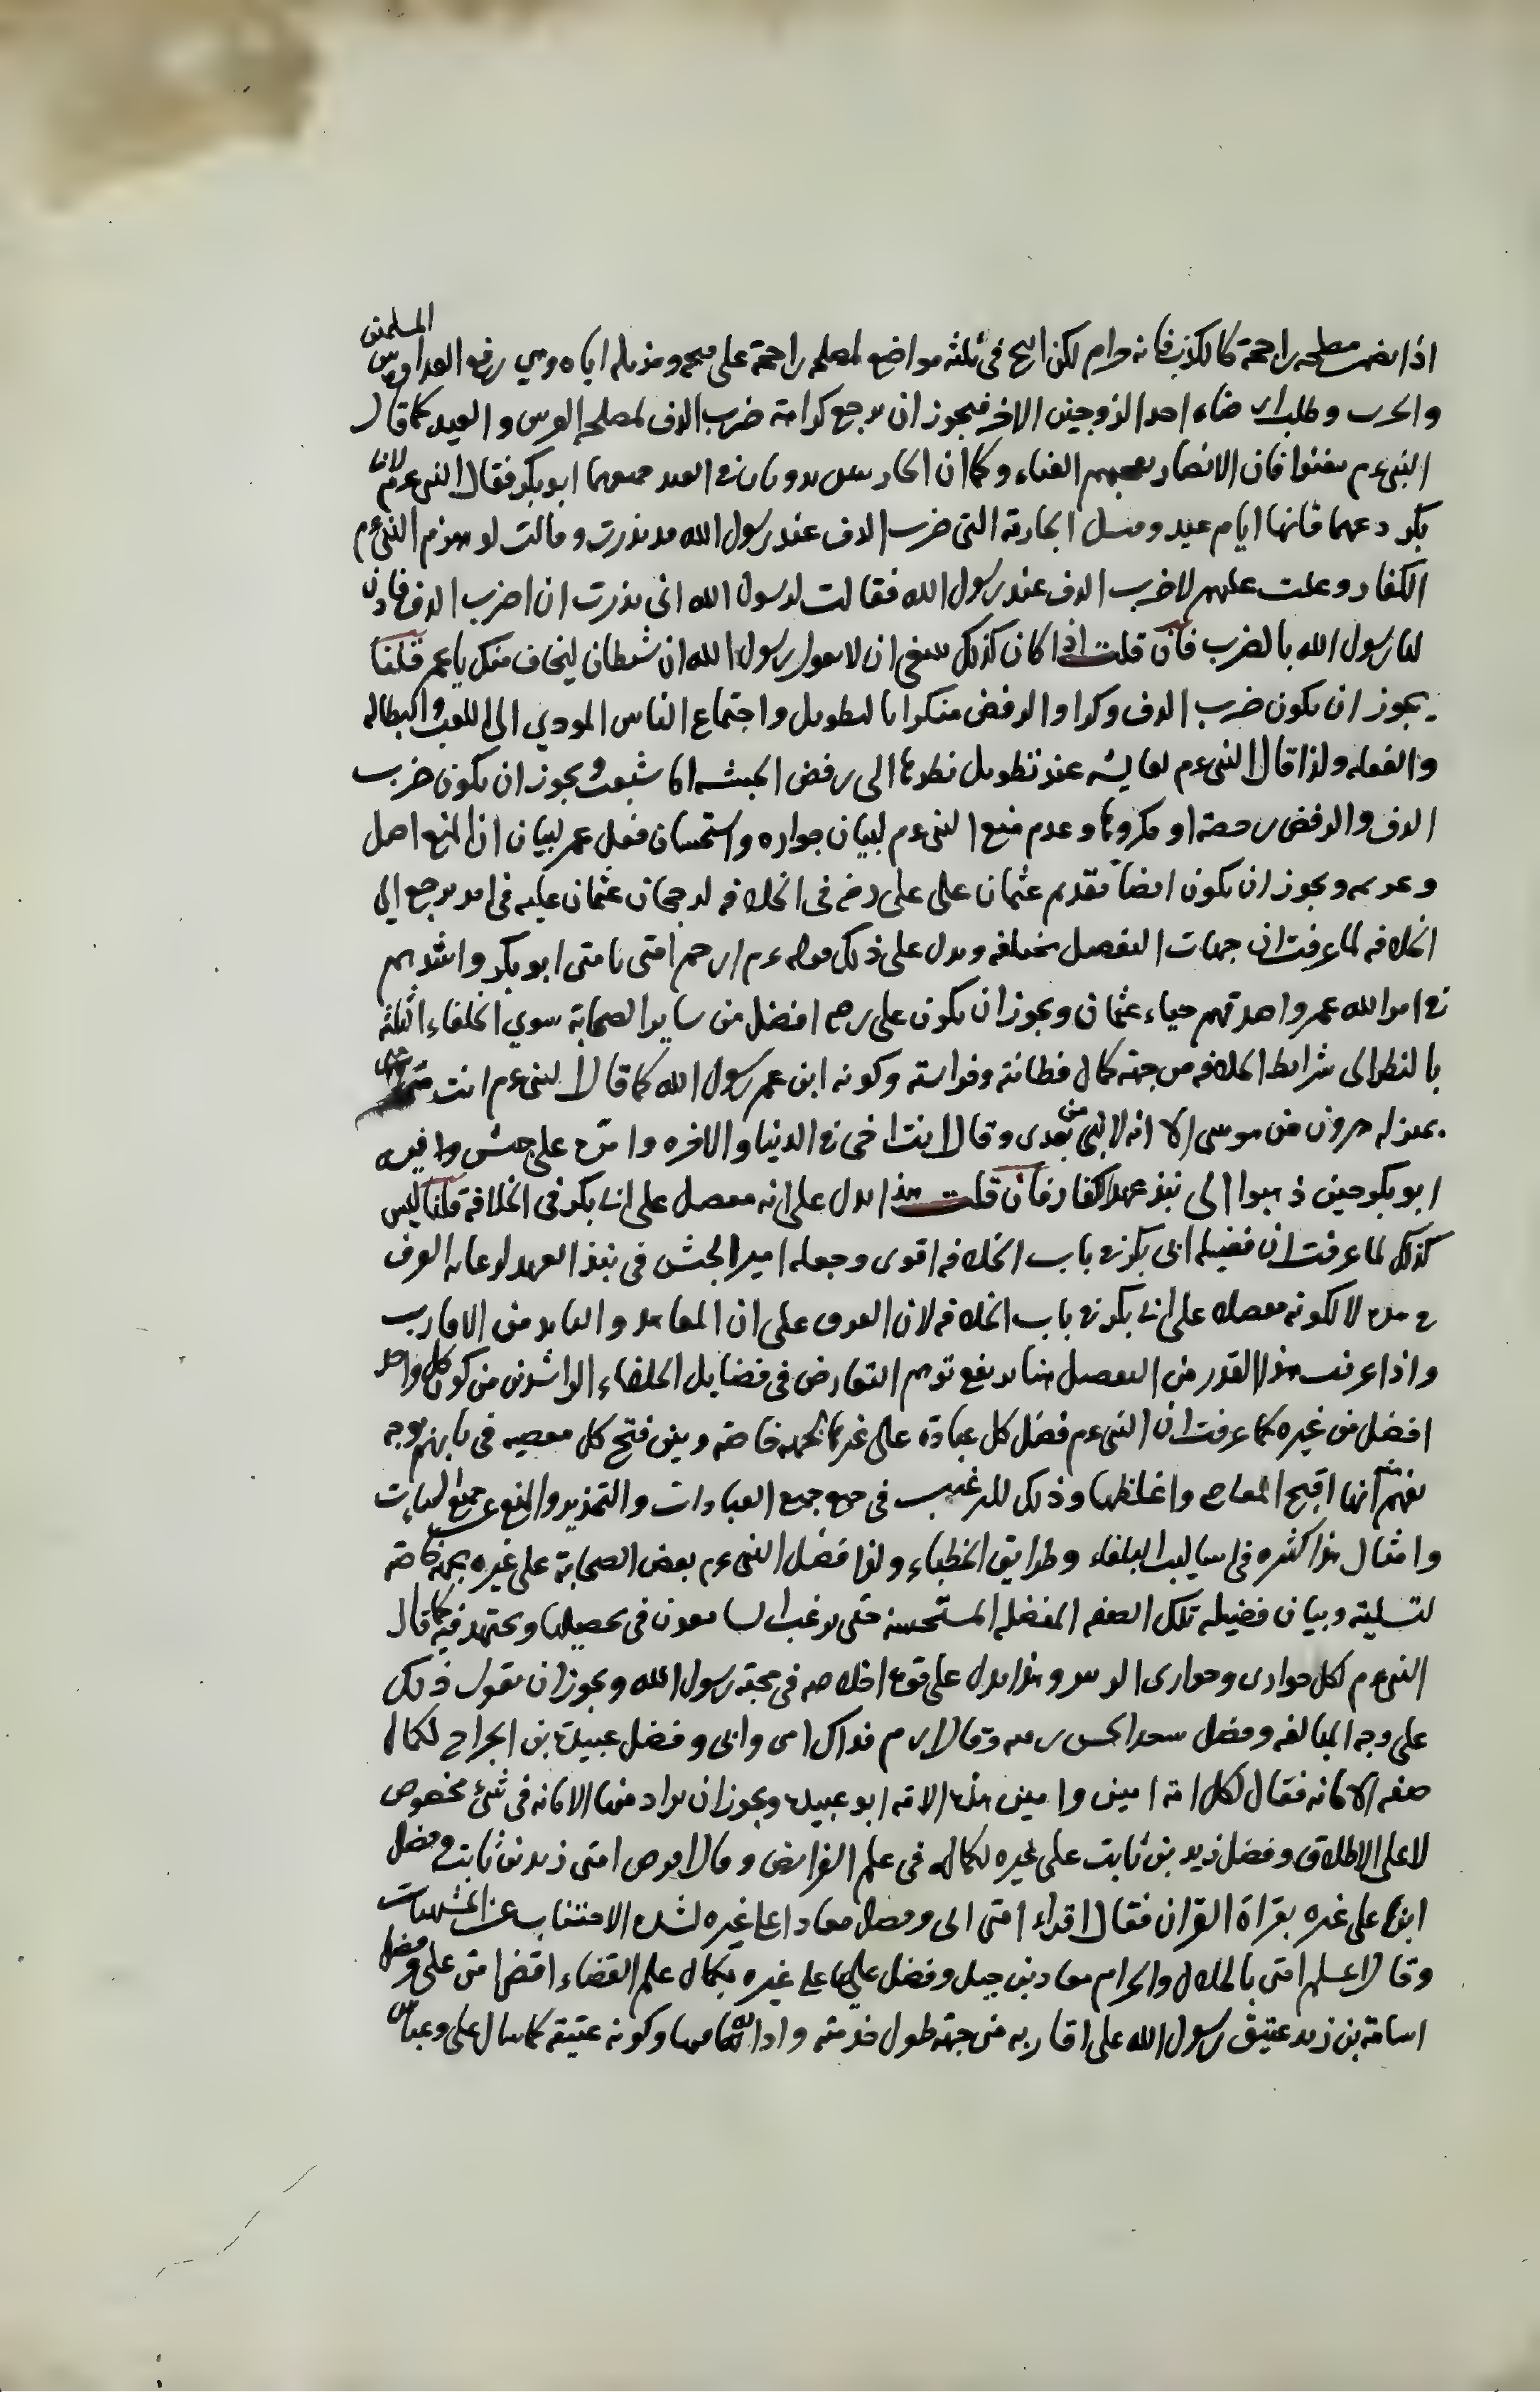 اذا تضمن مصلحة راجحة كالكذب فانه حرام لكن ابيح في ثلثة مواضع لمصلحة راجحة على وهي رفع العداوة بين المسلمين
والحرب وطلب ارضاء احد الزوجين الاخر فيجوز ان يرجع كراهة ضرب الدف لمصلحة العرس والعيد كما قال
النبي ءم فان الانصار يعجبهم الغناء وكما ان في العيد ابو بكر فقال النبي ءم لابا
بكر دعهما فانها ايام عيد ومثل الجارية التي ضرب الدف عند رسول الله قد نذرت وقالت لو هزم النبي ءم
الكفار وغلب عليهم لاضرب الدف عند رسول الله فقالت لرسول الله اني نذرت ان اضرب الدف فاذن
لها رسول الله بالضرب فان قلت اذا كان كذلك ينبغي ان لا يقول رسول الله ان شيطان ليخاف منك يا عمر قلنا
يجوز ان يكون ضرب الدف وكذا والرقص منكرا بالتطويل واجتماع الناس المودي الى اللعب والبطالة
والغفلة ولذا قال النبي ءم لعايشة عند تطويل نظرها الى رقص الحبشة اما شبعت ويجوز ان يكون ضرب
الدف والرقص رخصة او مكروها وعدم منع النبي ءم لبيان جوازه واستحسان فعل عمر لبيان ان المنع اصل
وعزيمة ويجوز ان يكون ايضا تقديم عثمان على علي رض في الخلافة لرجحان عثمان عليه في امر يرجع الى
الخلافة لما عرفت ان جهات التفضيل مختلفة ويدل على ذلك قوله ءم ارحم امتي بامتي ابو بكر واشدهم
في امر الله عمر واصدقهم حياء عثمان ويجوز ان يكون علي رض افضل من ساير الصحابة سوي الخلفاء الثلثة
بالنظر الى شرائط الخلافة من جهة كمال فطانته وفراسته وكونه ابن عم رسول الله كما قال النبي ءم انت مني
بمنزلة هرون من موسى الا انه لا نبي من بعدى وقال انت اخي في الدنيا والاخرة وامره على جيش وافيه
ابو بكر حين ذهبوا الى نبذ عهد الكفار فان قلت هذا يدل على انه مفضل على ابي بكر في الخلافة قلنا ليس
كذلك لما عرفت ان فضيلة ابي بكر في باب الخلافة اقوى وجعله امير الجيش في نبذ العهد لرعاية العرف
في هذه لا لكونه مفضلا على ابي بكر في باب الخلافة لان العرف على ان المعاهد والنابذ من الاقارب
واذا عرفت هذا القدر من التفضيل هنا يدفع توهم التعارض في فضايل الخلفاء الراشدين من كون كل واحد
افضل من غيره كما عرفت ان النبي ءم فضل كل عبادة على غيرها بجهة خاصة وبين قبح كل معصية في بابهم بوجه
يفهم انها اقبح المعاصي واغلظها وذلك للترغيب في جميع العبادات والتحذير والمنع عن جميع السيئات
وامثال هذا كثيرة في اساليب البلغاء وطرايق الخطباء ولذا فضل النبي ءم بعض الصحابة على غيره بجهة خاصة
لتسليته وبيان فضيلة تلك الصفة المفضلة المستحسنة حتى يرغب السامعون في تحصيلها ويجتهد فيه كما قال
النبي ءم لكل حوارى وحوارى الزبير وهذا يدل على قوة اخلاصه في محبة رسول الله ويجوز ان يقول ذلك
على وجه المبالغة وفضل سعدا وقال ارم فداك امي وابي وفضل عبيدة بن الجراح لكمال
صفة الامانة فقال لكل امة امين وامين هذه الامة ابو عبيدة ويجوز ان يراد منها الامانة في شئ مخصوص
لا على الاطلاق وفضل زيد بن ثابت على غيره لكماله في علم الفرايض وقال افرض امتي زيد بن ثابت وفضل
ابيا على غيره بقراة القران فقال اقراء امتي ابي وفضل معاذا على غيره لشدة الاجتناب عن المشتبهات
وقال اعلم امتي بالحلال والحرام معاد بن جبل وفضل عليا على غيره بكمال علم القضاء اقضا امتي علي وفضل
اسامة بن زيد عتيق رسول الله على اقاربه من جهة طول خدمته وكونه عتيقه كما سال علي وعباس